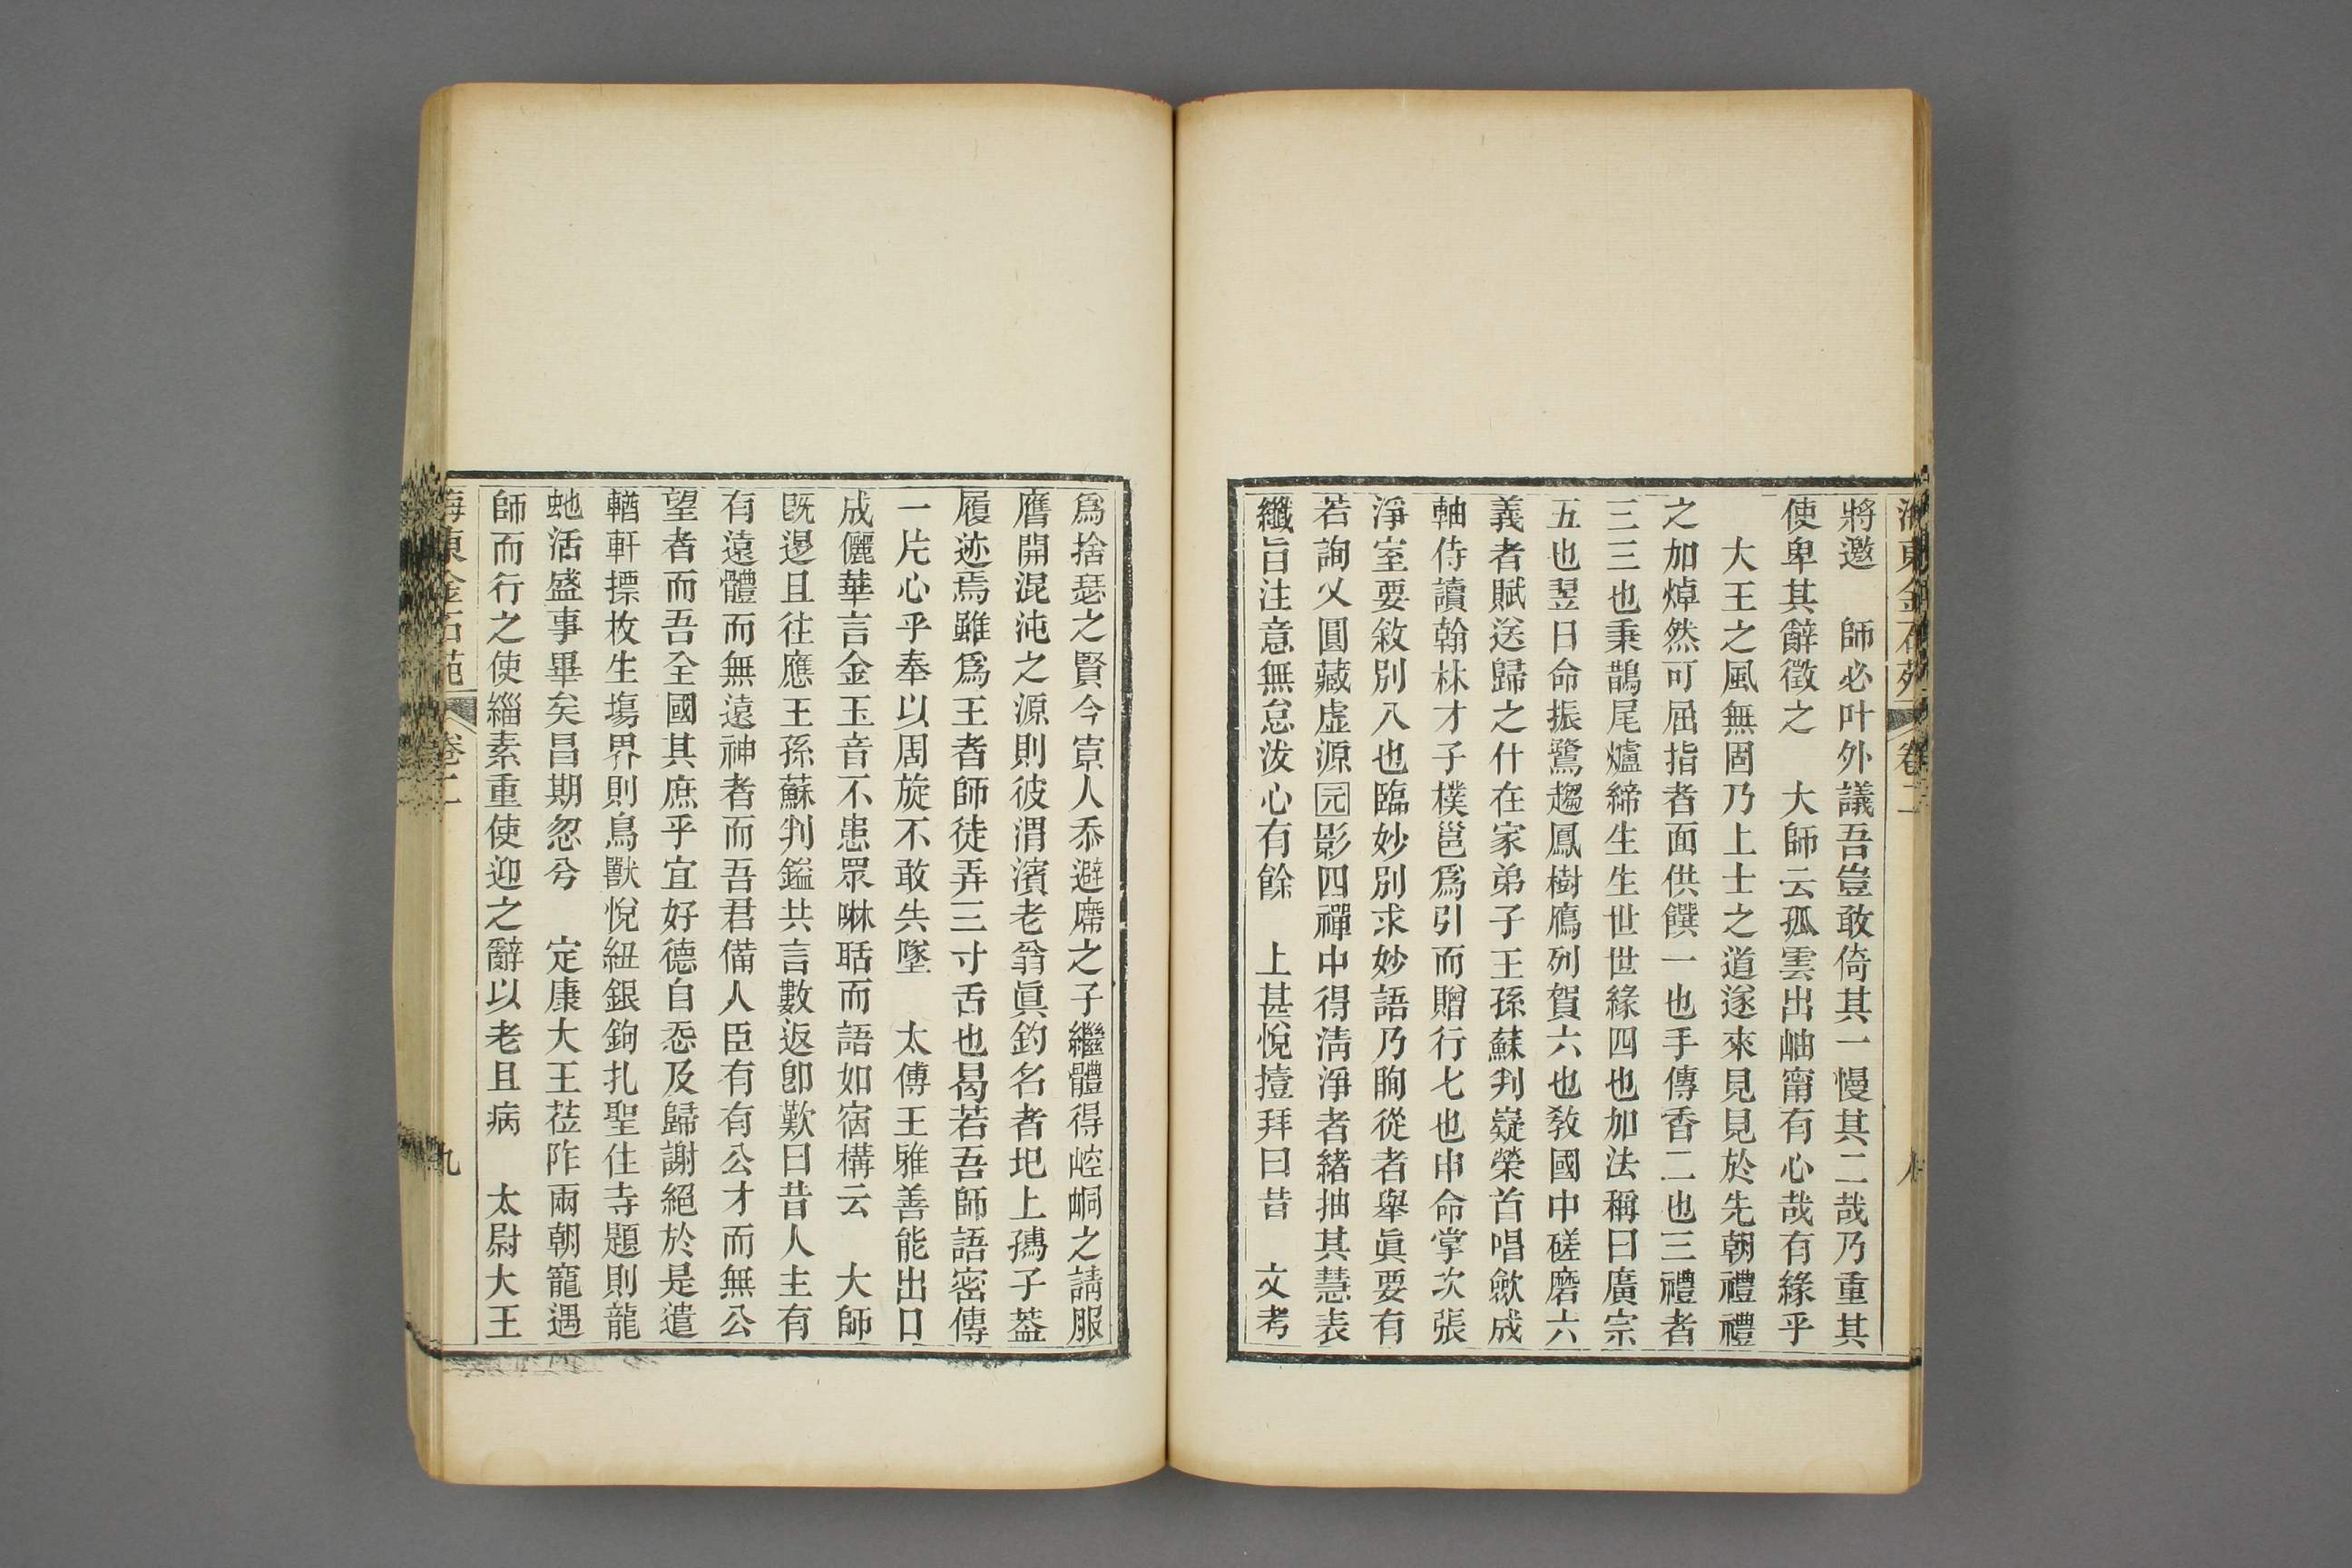 海東金石苑 卷二 八
將邀　師必叶外議吾豈敢倚其一慢其二哉乃重其
使卑其辭徵之　大師云孤雲出岫甯有心哉有緣乎
大王之風無固乃上士之道遂來見見於先朝禮禮
之加焯然可屈指者面供饌一也手傳香二也三禮者
三三也秉鵲尾爐締生生世世緣四也加法稱曰廣宗
五也翌日命振鷺趨鳳樹鴈列賀六也教國中磋磨六
義者賦送歸之什在家弟子王孫蘇判嶷榮首唱斂成
軸侍讀翰林才子樸邕爲引而贈行七也申命掌次張
淨室要敘別八也臨妙別求妙語乃眴從者舉眞要有
若詢乂圓藏虛源元影四禪中得淸淨者緒抽其慧表
纖旨注意無怠泼心有餘　上甚悅擡拜曰昔　文考
爲捨瑟之賢今㝢人忝避席之子繼體得崆峒之請服
膺開混沌之源則彼渭濱老翁眞釣名者圯上孺子葢
履迹焉雖爲王者師徒弄三寸舌也曷若吾師語密傳
一片心乎奉以周旋不敢失墜　太傅王雅善能出口
成儷華言金玉音不患眾啉聒而語如宿構云　大師
旣退且往應王孫蘇判鎰共言數返卽歎曰昔人主有
有遠體而無遠神者而吾君備人臣有有公才而無公
望者而吾全國其庶乎宜好德自忞及歸謝絕於是遣
輶軒摽枚生塲界則鳥獸悅紐銀鉤扎聖住寺題則龍
虵活盛事畢矣昌期忽兮　定康大王莅阼兩朝寵遇
師而行之使緇素重使迎之辭以老且病　太尉大王
海東金石苑 卷二 九